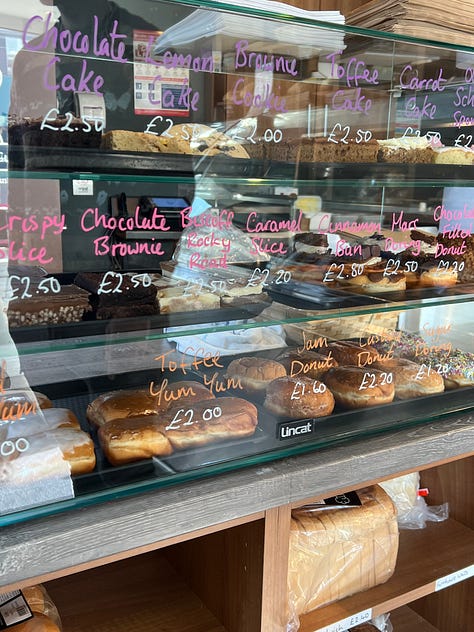 Chocolate
Cake
£2.50
Lemon
Cake
Brownie
Cookie
£2.00
Toffee
Cake
£2.50
Carrot
Cake
£2.50
Crispy
Slice
£2.50
Chocolate
Brownie
£2.50
Biscoff
Rocky
Road
£2.50
Caramel
Slice
£2.20
Cinnamon
Bun
£2.80
Mars
£2.50
Chocolate
Filled
Donut
£2.20
Toffee
Yum Yum
£2.00
Jam
Donut
£1.60
Custard
Donut
£2.20
£1.20
Lincat